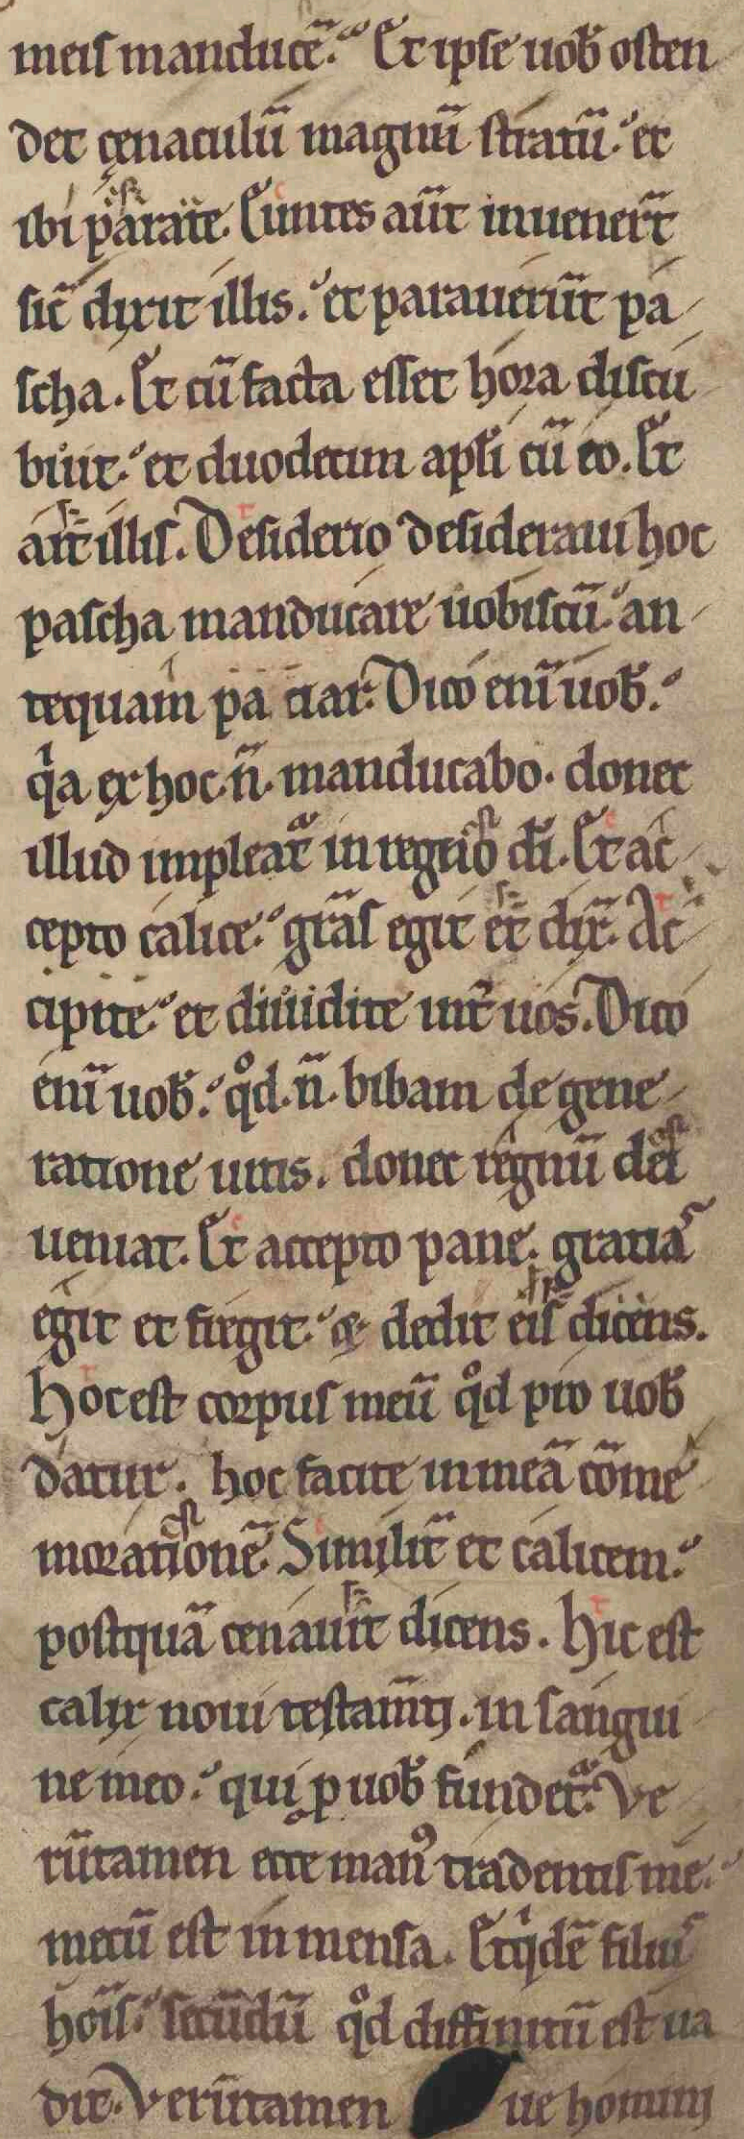 meis manducē. Et ipse uob̄ osten
det cęnaculū magnū stratū. et
ibi parate. Euntes aūt inuener̄t
sic̄ dixit illis. et parauerūt pa
scha. Et cū facta esset hora discu
buit. et duodecim apłi cū eo. Et
ait illis. Desiderio desideraui hoc
pascha manducare uobiscū. an
tequam patiar. Dico enī uob̄.
qͥa ex hoc n̄ manducabo. donec
illud impleat᷑ in regno dī. Et ac
cepto calice. gr̄as egit et dix̄. Ac
cipite. et diuidite int̄ uos. Dico
enī uob̄. qͦd n̄ bibam de gene
ratione uitis. donec regnū dei
ueniat. Et accepto pane. gratias
egit et fregit. & dedit eis dicens.
Hoc est corpus meū qͦd pro uob̄
datur. hoc facite in meā cōme
morationē. Similit̄ et calicem.
postquā cenauit dicens. Hic est
calix noui testam̄ti. in sangui
ne meo. qui ꝓ uob̄ fundet᷑. Ve
rūtamen ecce manꝰ tradentis me.
mecū est in mensa. Et qͥdē filius
hoīs. secūdū qͦd diffinitū est ua
dit. Verūtamen ue homini